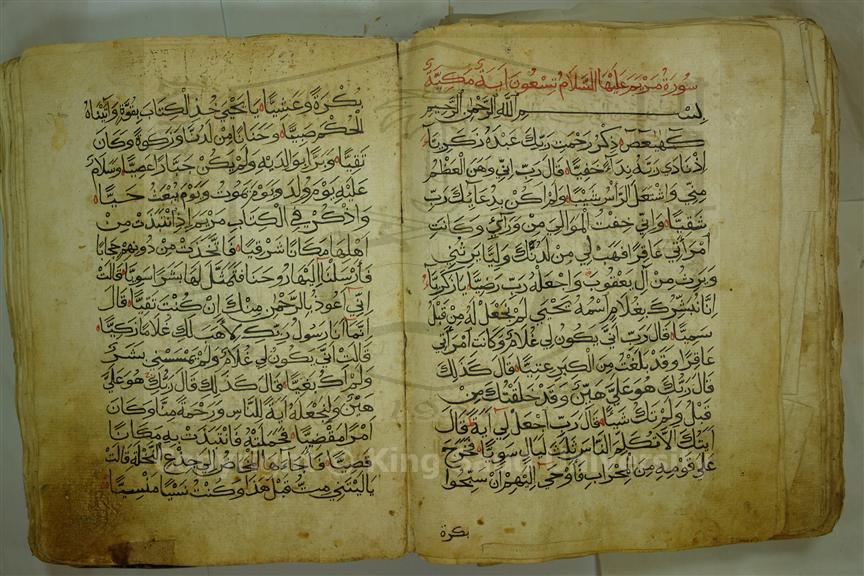 سورة مريم عليها السلام تسعون اية مكية
بسم الله الرحمن الرحيم
كهيعص ذكر رحمت ربك عبده زكريا
اذ نادى ربه نداء خفيا قال رب اني وهن العظم
مني واشتعل الراس شيبا ولم اكن بدعايك رب
شقيا واني خفت الموالي من وراي وكانت
امراتي عاقرا فهب لي من لدنك وليا يرثني
ويرث من آل يعقوب واجعله رب رضيا يا زكريا
انا نبشرك بغلام اسمه يحيى لم نجعل له من قبل
سميا قال رب انى يكون لي غلام وكانت امراتي
عاقرا وقد بلغت من الكبر عتيا قال كذلك
قال ربك هو علي هين وقد خلقتك من
قبل ولم تك شيئا قال رب اجعل لي آية قال
آيتك الا تكلم الناس ثلث ليال سويا فخرج
على قومه من المحراب فاوحى اليهم ان سبحوا
بكرة
بكرة وعشيا يا يحيى خذ الكتاب بقوة واتيناه
الحكم صبيا وحنانا من لدنا وزكوة وكان
تقيا وبرا بوالديه ولم يكن جبارا عصيا وسلام
عليه يوم ولد ويوم يموت ويوم يبعث حيا
واذكر في الكتاب مريم اذ انتبذت من
اهلها مكانا شرقيا فاتخذت من دونهم حجابا
فارسلنا اليها روحنا فتمثل لها بشرا سويا قالت
اني اعوذ بالرحمن منك ان كنت تقيا قال
انما انا رسول ربك لاهب لك غلاما زكيا
قالت انى يكون لي غلام ولم يمسسني بشر
ولم اك بغيا قال كذلك قال ربك هو علي
هين ولنجعله آية للناس ورحمة منا وكان
امرا مقضيا فحملته فانتبذت به مكانا
قصيا فاجاءها المخاض الى جذع النخلة قالت
يا ليتني مت قبل هذا وكنت نسيا منسيا